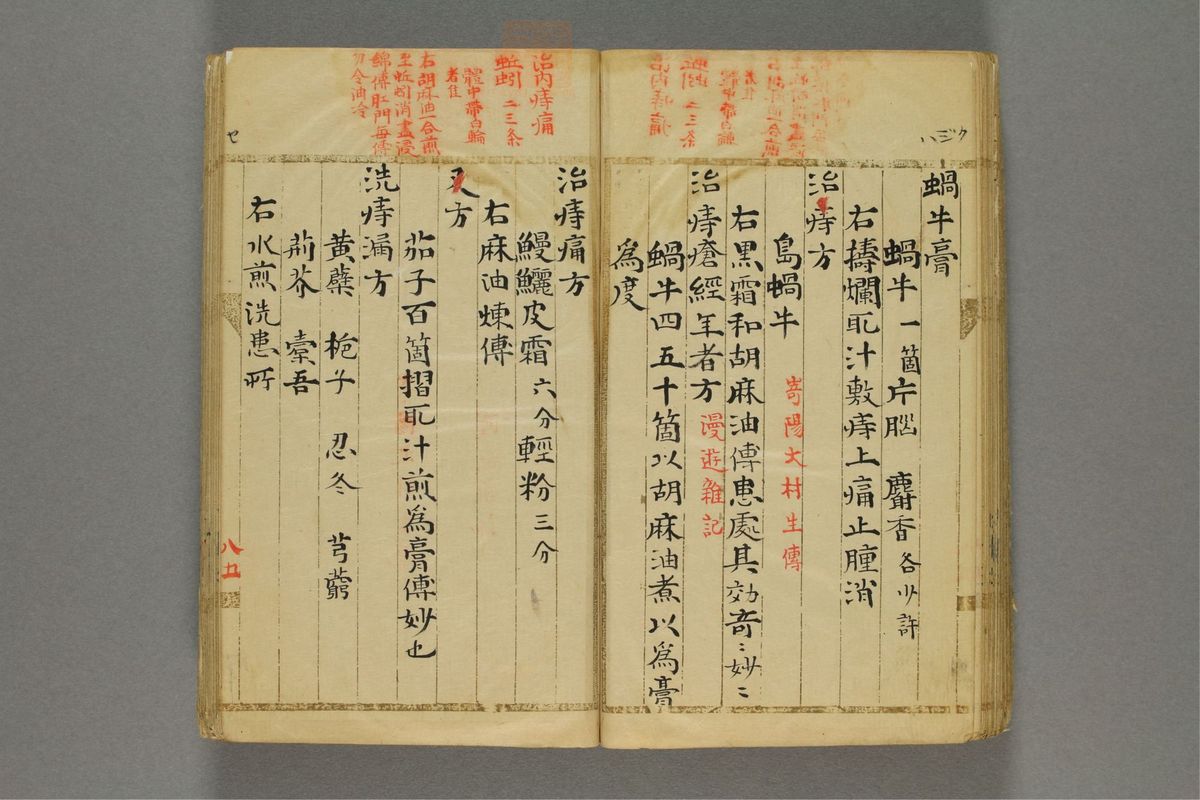 ハジク
蝸牛膏
蝸牛一箇片脳 麝香各少許
右擣爛取汁敷痔上痛止腫消
治痔方
島蝸牛 嵜陽大村生傳
右黒霜和胡麻油傅患處其効奇〻妙〻
治痔瘡經年者方 漫遊雜記
蝸牛四五十箇以胡麻油煮以爲膏
爲度
治内痔痛
蚯蚓 二三条
體中帶白輪
者佳
右胡麻油一合煎
至蚯蚓消盡浸
綿傅肛門毎傅
勿令油冷
セ
治痔痛方
鰻鱺皮霜六分輕粉三分
右麻油煉傅
又方
茄子百箇摺取汁煎爲膏傅妙也
洗痔漏方
黄蘗 梔子 忍冬 芎藭
荊芥 橐吾
右水煎洗患所
八五